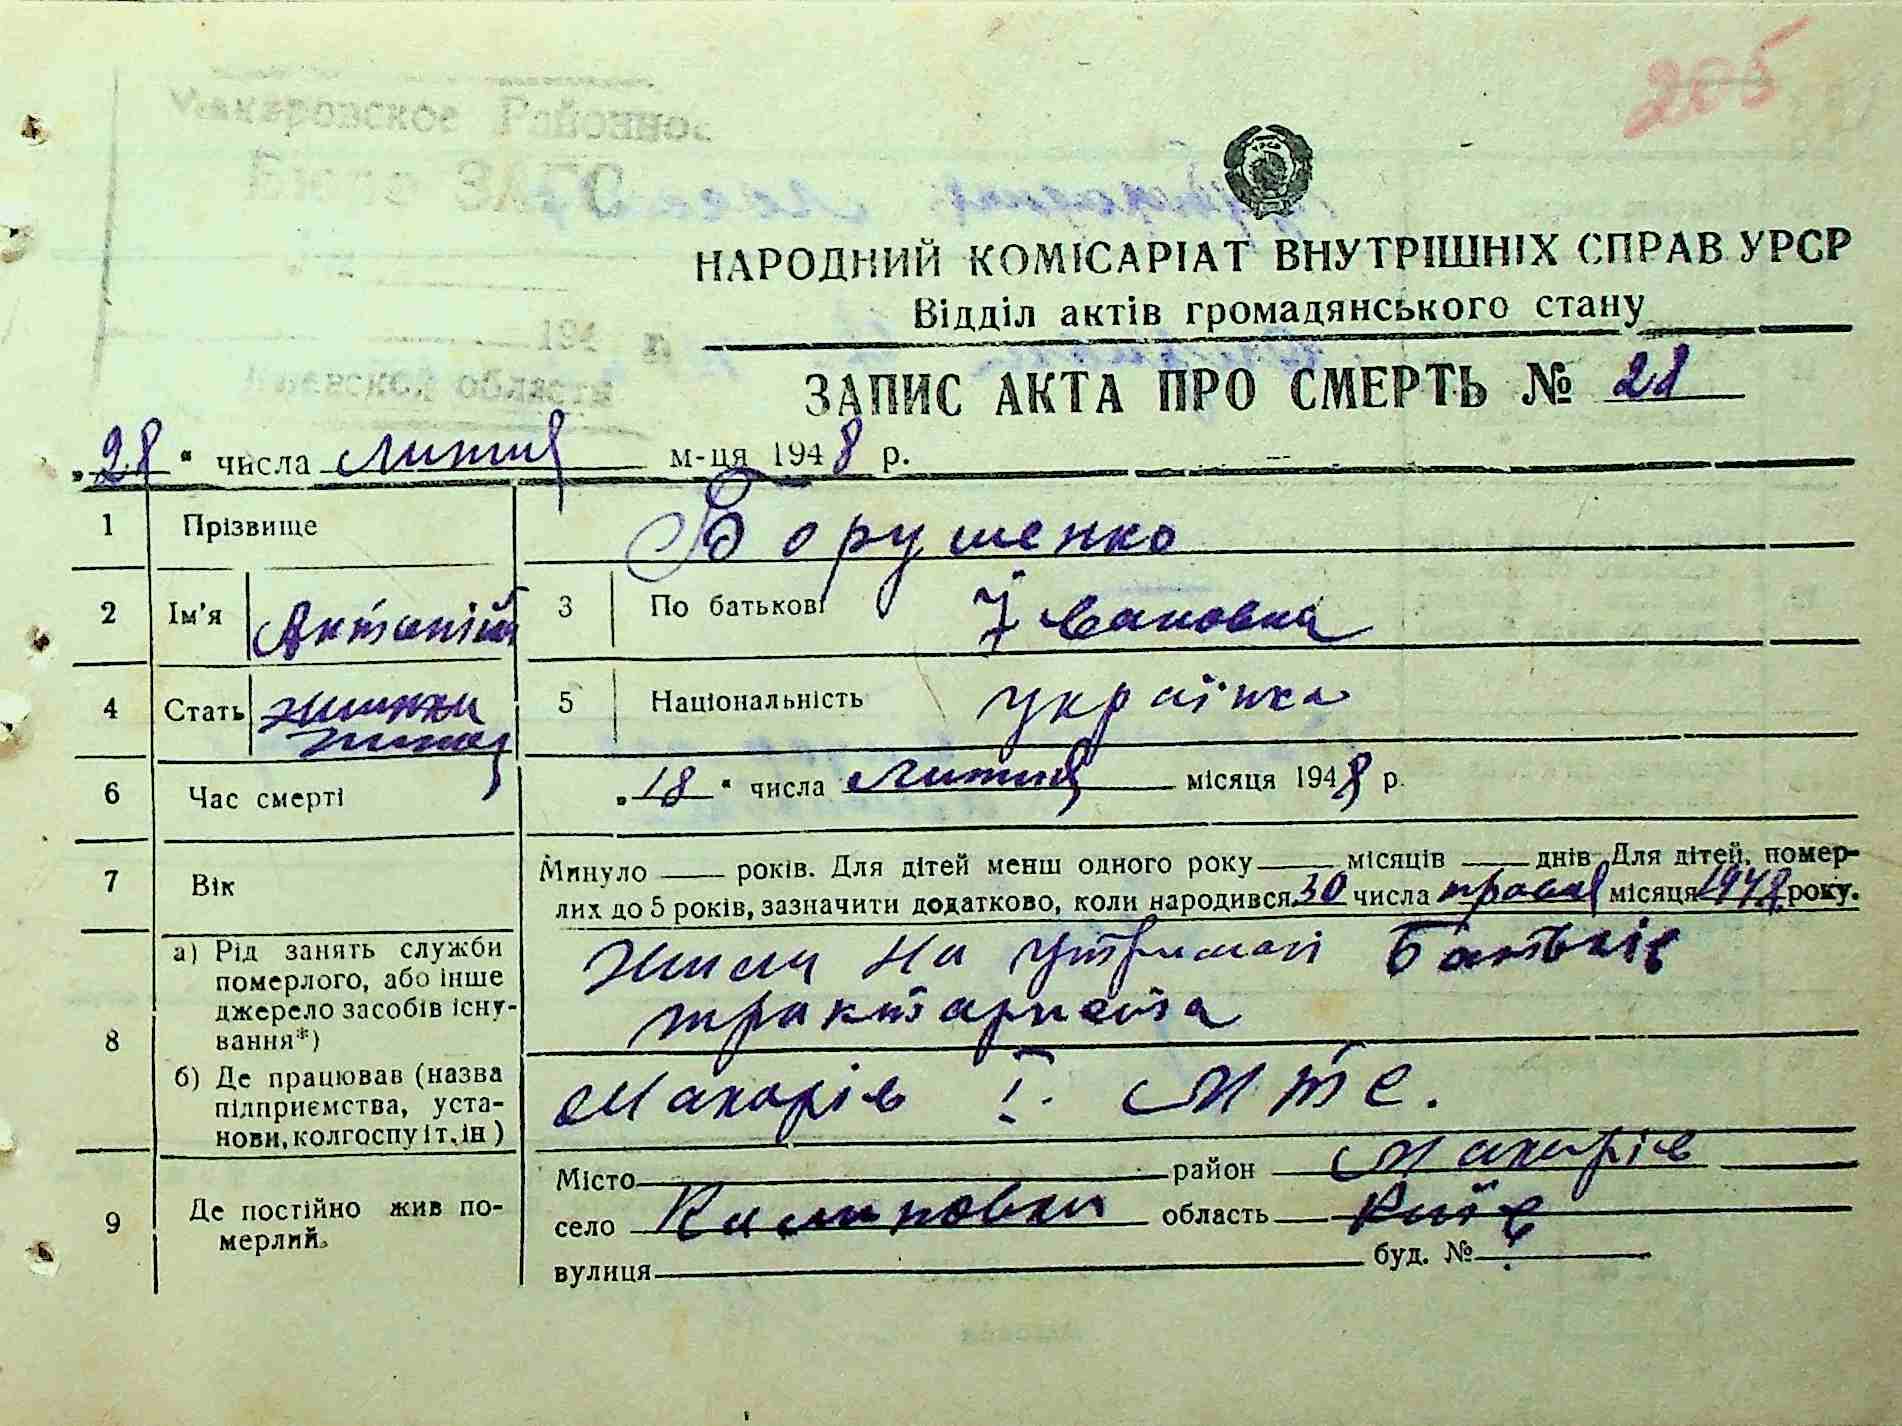 205
Макаровское Районное
Бюро ЗАГС
194 г.
Киевской области
НАРОДНИЙ КОМІСАРІАТ ВНУТРІШНІХ СПРАВ УРСР
Відділ актів громадянського стану
ЗАПИС АКТА ПРО СМЕРТЬ № 28
„28“ числа лютня м-ця 1948 р.
1 Прізвище Борушенко
2 Ім'я 3 По батькові Івановна
4 Стать 5 Національність українка
6 Час смерті „18“ числа лютня місяця 1948 р.
7 Вік Минуло — років. Для дітей менш одного року — місяців — днів Для дітей, помер-
лих до 5 років, зазначити додатково, коли народився 30 числа місяця 1948 року.
8 а) Рід занять служби
померлого, або інше
джерело засобів існу-
вання*)
на утримані Батьків
тракториста
б) Де працював (назва
підприємства, уста-
нови, колгоспу і т. ін)
Макарів І. МТС.
9 Де постійно жив по-
мерлий.
Місто район Макарів
село область Київ
вулиця буд. №